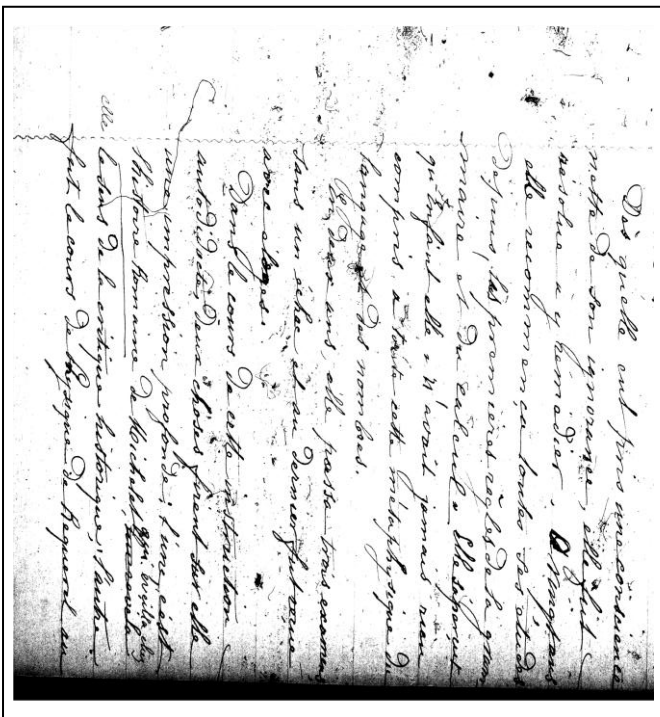 Dès qu'elle eut pris une conscience
nette de son ignorance, elle fut
résolue à y remédier. A vingt ans
elle recommença toutes ses études
Depuis les premières règles de la gram
-maire et du calcul. Elle s'aperçut
qu'enfant elle n'avait jamais rien
compris à toute cette métaphysique du
langage et des nombres.
En deux ans, elle passa trois examens
sans un échec et au dernier fut reçue
avec éloges.
Dans le cours de cette instruction
autodidacte, deux choses firent sur elle
une impression profonde: l'une était
l'histoire Romaine de Michelet qui
elle le sens de la critique historique; l'autre
fut le cours de Physique de Regnault au